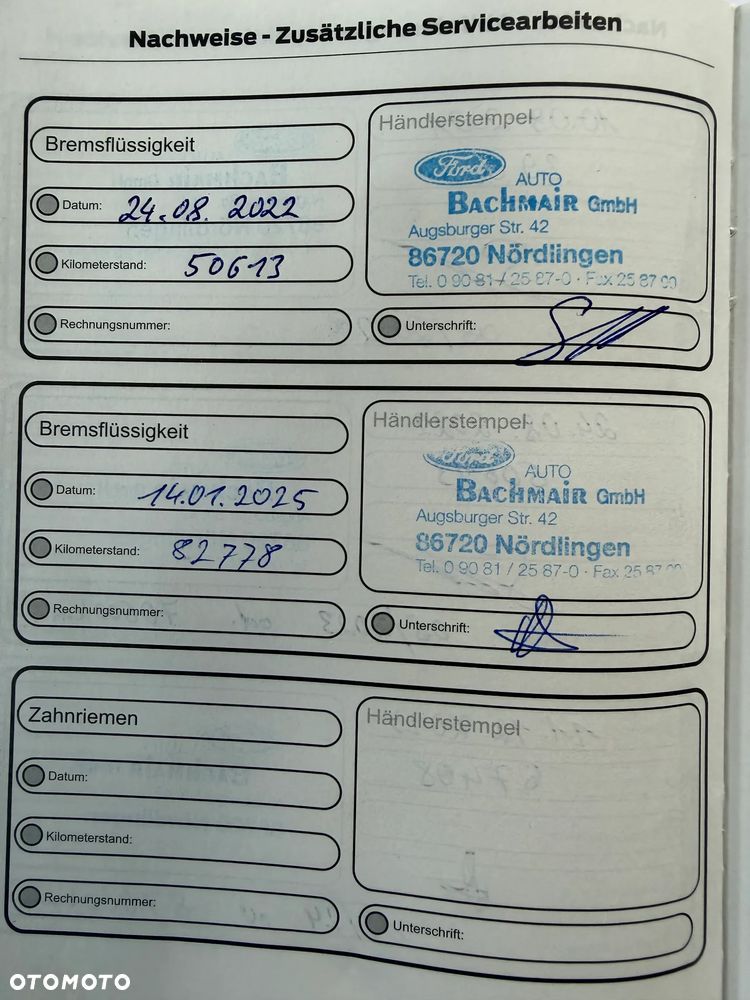 Nachweise - Zusätzliche Servicearbeiten
Bremsflüssigkeit
Datum: 24.08.2022
Kilometerstand: 50613
Rechnungsnummer:
Händlerstempel
Ford
AUTO
BACHMAIR GmbH
Augsburger Str. 42
86720 Nördlingen
Tel. 0 90 81 / 25 87-0 · Fax 25 87
Unterschrift:
Bremsflüssigkeit
Datum: 14.01.2025
Kilometerstand: 82778
Rechnungsnummer:
Händlerstempel
Ford
AUTO
BACHMAIR GmbH
Augsburger Str. 42
86720 Nördlingen
Tel. 0 90 81 / 25 87-0 · Fax 25 87
Unterschrift:
Zahnriemen
Datum:
Kilometerstand:
Rechnungsnummer:
Händlerstempel
67408
Unterschrift:
OTOMOTO